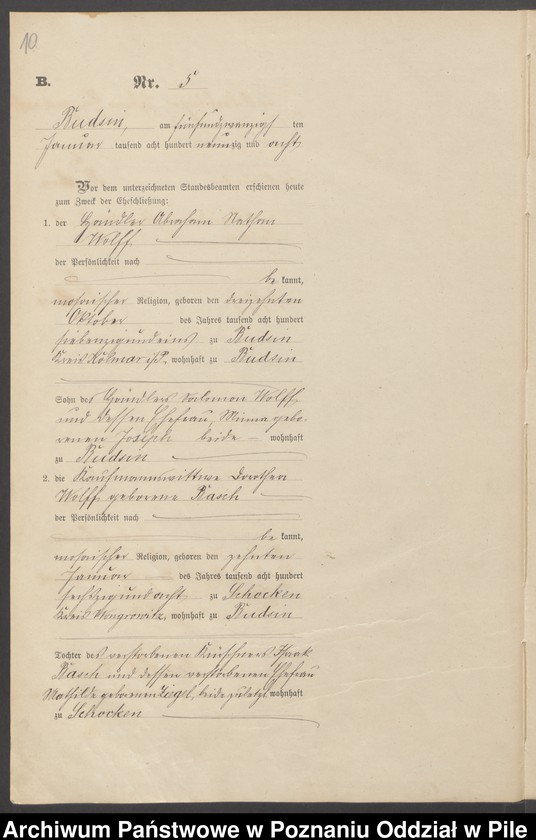 10
B. Nr. 5
Budsin, am fünfundzwanzigs ten
Januar tausend acht hundert neunzig und acht
Vor dem unterzeichneten Standesbeamten erschienen heute
zum Zweck der Eheschließung:
1. der Händler Abraham Nathan
Wolff
der Persönlichkeit nach
be kannt,
mosaischer Religion, geboren den dreizehnten
Oktober des Jahres tausend acht hundert
siebenzig und eins zu Budsin
Kreis Kolmar i/P. wohnhaft zu Budsin
Sohn des Händlers Salomon Wolff
und dessen Ehefrau, Minna gebo-
renen Joseph beide wohnhaft
zu Budsin
2. die Kaufmannswittwe Dorothea
Wolff geborene Basch
der Persönlichkeit nach
be kannt,
mosaischer Religion, geboren den zehnten
Januar des Jahres tausend acht hundert
sechszig und acht zu Schocken
Kreis Wongrowitz, wohnhaft zu Budsin
Tochter des verstorbenen Kürschners Isaak
Basch und dessen verstorbenen Ehefrau
Mathilde geborenen Siegel, beide zuletzt wohnhaft
zu Schocken
Archiwum Państwowe w Poznaniu Oddział w Pile